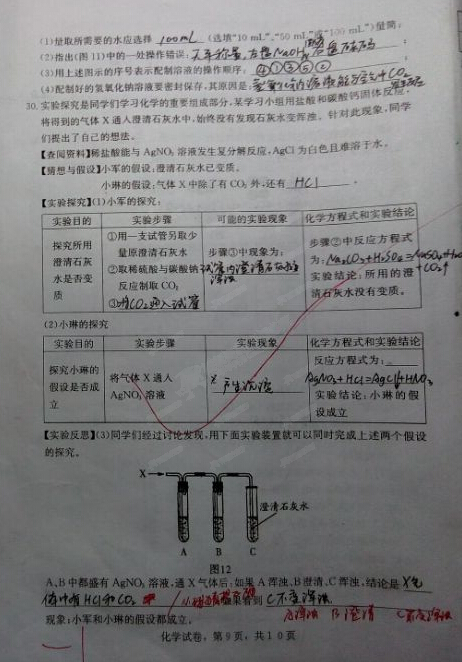 (1)量取所需要的水应选择 100mL (选填"10 mL"、"50 mL"或"100 mL")量筒;
(2)指出(图11)中的一处操作错误:
(3)用上述图示的序号表示配制溶液的操作顺序: ④①③⑤②
(4)配制好的氢氧化钠溶液要密封保存,其原因是:
30. 实验探究是同学们学习化学的重要组成部分,某学习小组用盐酸和碳酸钙固体反应,
将得到的气体X通入澄清石灰水中,始终没有发现石灰水变浑浊。针对此现象,同学
们提出了自己的想法。
【查阅资料】稀盐酸能与AgNO₃溶液发生复分解反应,AgCl为白色且难溶于水。
【猜想与假设】小军的假设:澄清石灰水已变质。
小琳的假设:气体X中除了有CO₂外,还有 HCl 。
【实验探究】(1)小军的探究:
实验目的 实验步骤 可能的实验现象 化学方程式和实验结论
探究所用澄清石灰水是否变质
①用一支试管另取少量原澄清石灰水
②取稀硫酸与碳酸钠反应制取CO₂
③将CO₂通入试管
步骤③中现象为:
试管内澄清石灰水浑浊
步骤②中反应方程式为:Na₂CO₃+H₂SO₄=Na₂SO₄+H₂O+CO₂↑
实验结论:所用的澄清石灰水没有变质。
(2)小琳的探究
实验目的 实验步骤 实验现象 化学方程式和实验结论
探究小琳的假设是否成立
将气体X通入AgNO₃溶液
产生沉淀
反应方程式为:
AgNO₃+HCl=AgCl↓+HNO₃
实验结论:小琳的假设成立
【实验反思】(3)同学们经过讨论发现,用下面实验装置就可以同时完成上述两个假设
的探究。
X
澄清石灰水
A B C
图12
A、B中都盛有AgNO₃溶液,通X气体后:如果A浑浊、B澄清、C浑浊,结论是 X气
体中有HCl和CO₂ 果看到 C不变浑浊
A浑浊 B澄清 C不变浑浊
现象:小军和小琳的假设都成立。
化学试卷,第9页,共10页